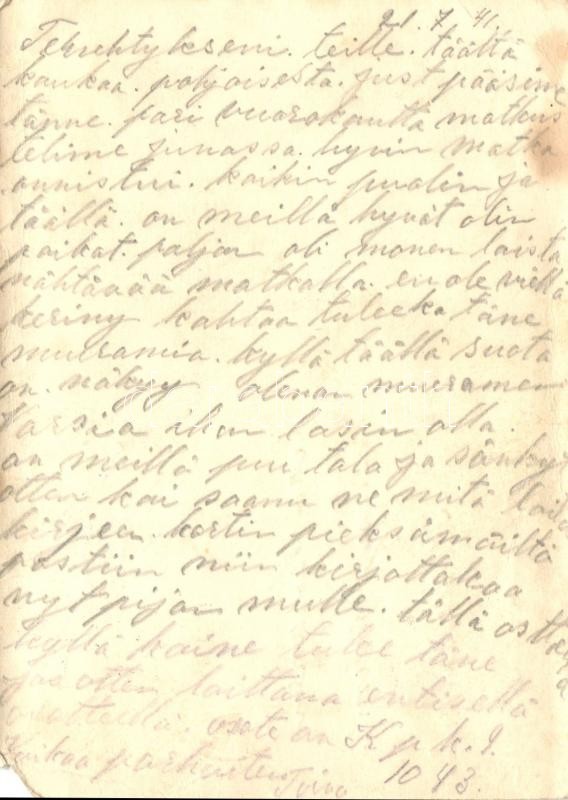 21.7.41.
Tervehtykseni. teille. täältä
kaukaa. pohjoisesta. just pääsime
tänne. pari vuorokautta matkus
telime junassa. hyvin matka
onnistui. kaikin puolin ja
täällä. on meillä hyvät olin
paikat. paljon oli monen laista
nähtävää matkalla. en ole vielä
keriny kahtoa tuleeko täne
muuramia. kyllä täällä suota
on. näkyy olenan muuramen
Varsia ihun lasin alla.
on meillä puu talo ja sänkyt
otten kai saanu ne mitä laiton
kirjeen. kortin pieksämäiltä
postiin niin kirjottakaa
nyt pijan mulle. tällä osotteela
kyllä kaine tulee täne
jos otten laittana entisellä
osotteella. osote on K p k. 9.
1043.
Kuikaa parhaiten Toivo